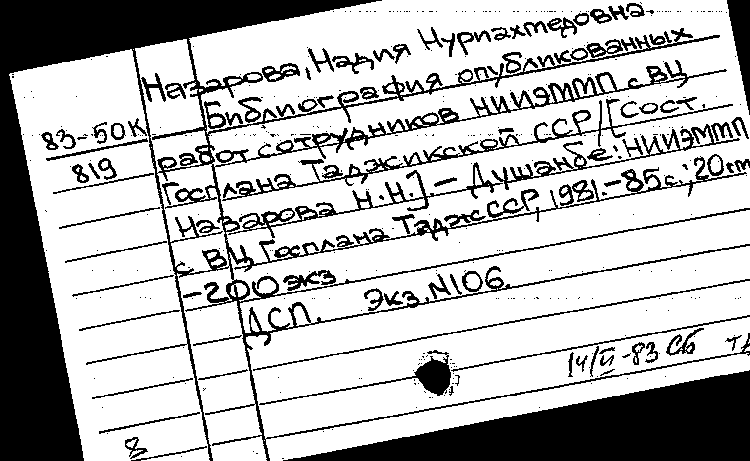 Назарова, Надия Нурпахтедовна.
Библиография опубликованных
83-50К
819
работ сотрудников НИИЭММП с ВЦ
Госплана Таджикской ССР/[Сост.
Назарова Н.Н.] - Душанбе: НИИЭММП
с ВЦ Госплана ТаджССР, 1981.-85с.; 20см
-200экз.
ДСП. Экз.N106.
14/II-83 Сб
8